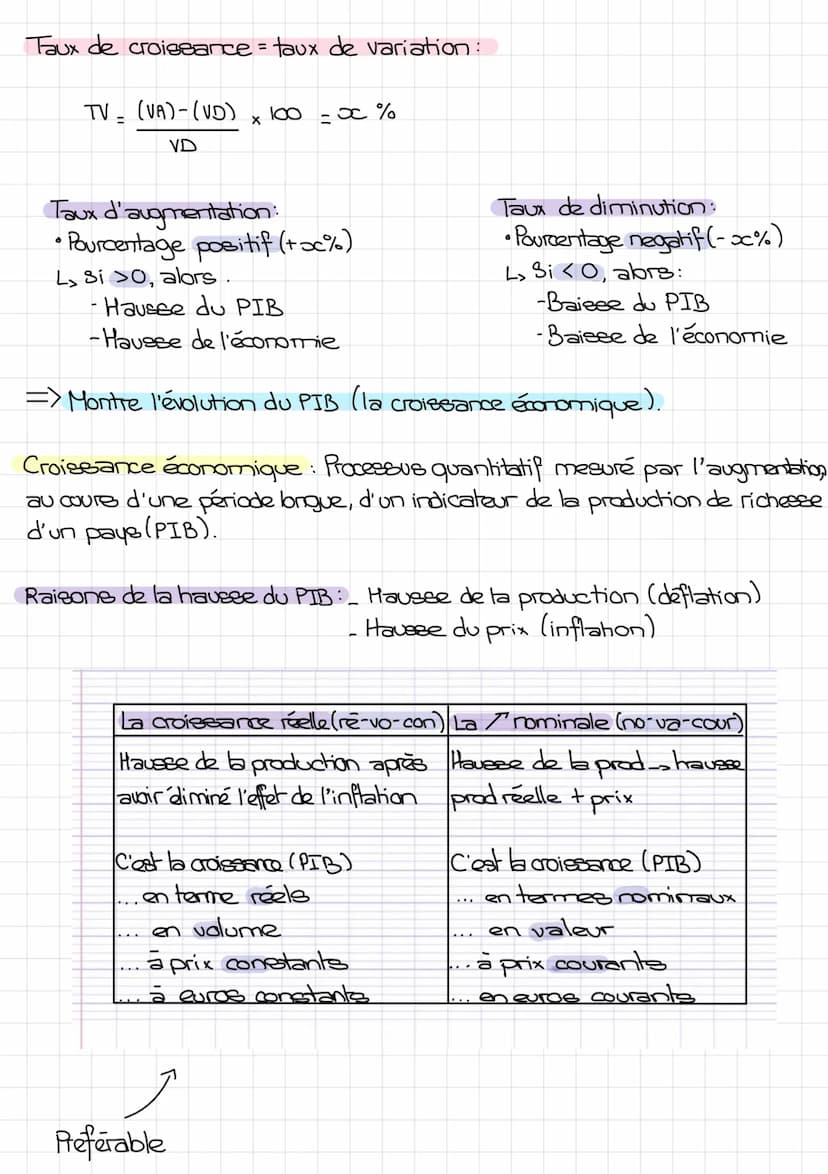 Taux de croissance = taux de variation :
TV = (VA)-(VD) × 100 = x %
VD
Taux d'augmentation:
• Pourcentage positif (+x%)
↳ Si >0, alors .
- Hausse du PIB
- Hausse de l'économie
Taux de diminution:
• Pourcentage negatif (-x%)
↳ Si <0, alors:
- Baisse du PIB
- Baisse de l'économie
=> Montre l'évolution du PIB (la croissance économique).
Croissance économique : Processus quantitatif mesuré par l'augmentation,
au cours d'une période longue, d'un indicateur de la production de richesse
d'un pays (PIB).
Raisons de la hausse du PIB : - Hausse de la production (déflation)
- Hausse du prix (inflation)
La croissance réelle (ré-vo-con)
Hausse de la production après
avoir éliminé l'effet de l'inflation
C'est la croissance (PIB)
... en terme réels
... en volume
... à prix constants
... à euros constants
La ↗ nominale (no-va-cour)
Hausse de la prod → hausse
prod réelle + prix
C'est la croissance (PIB)
... en termes nominaux
... en valeur
... à prix courants
... en euros courants
Préférable